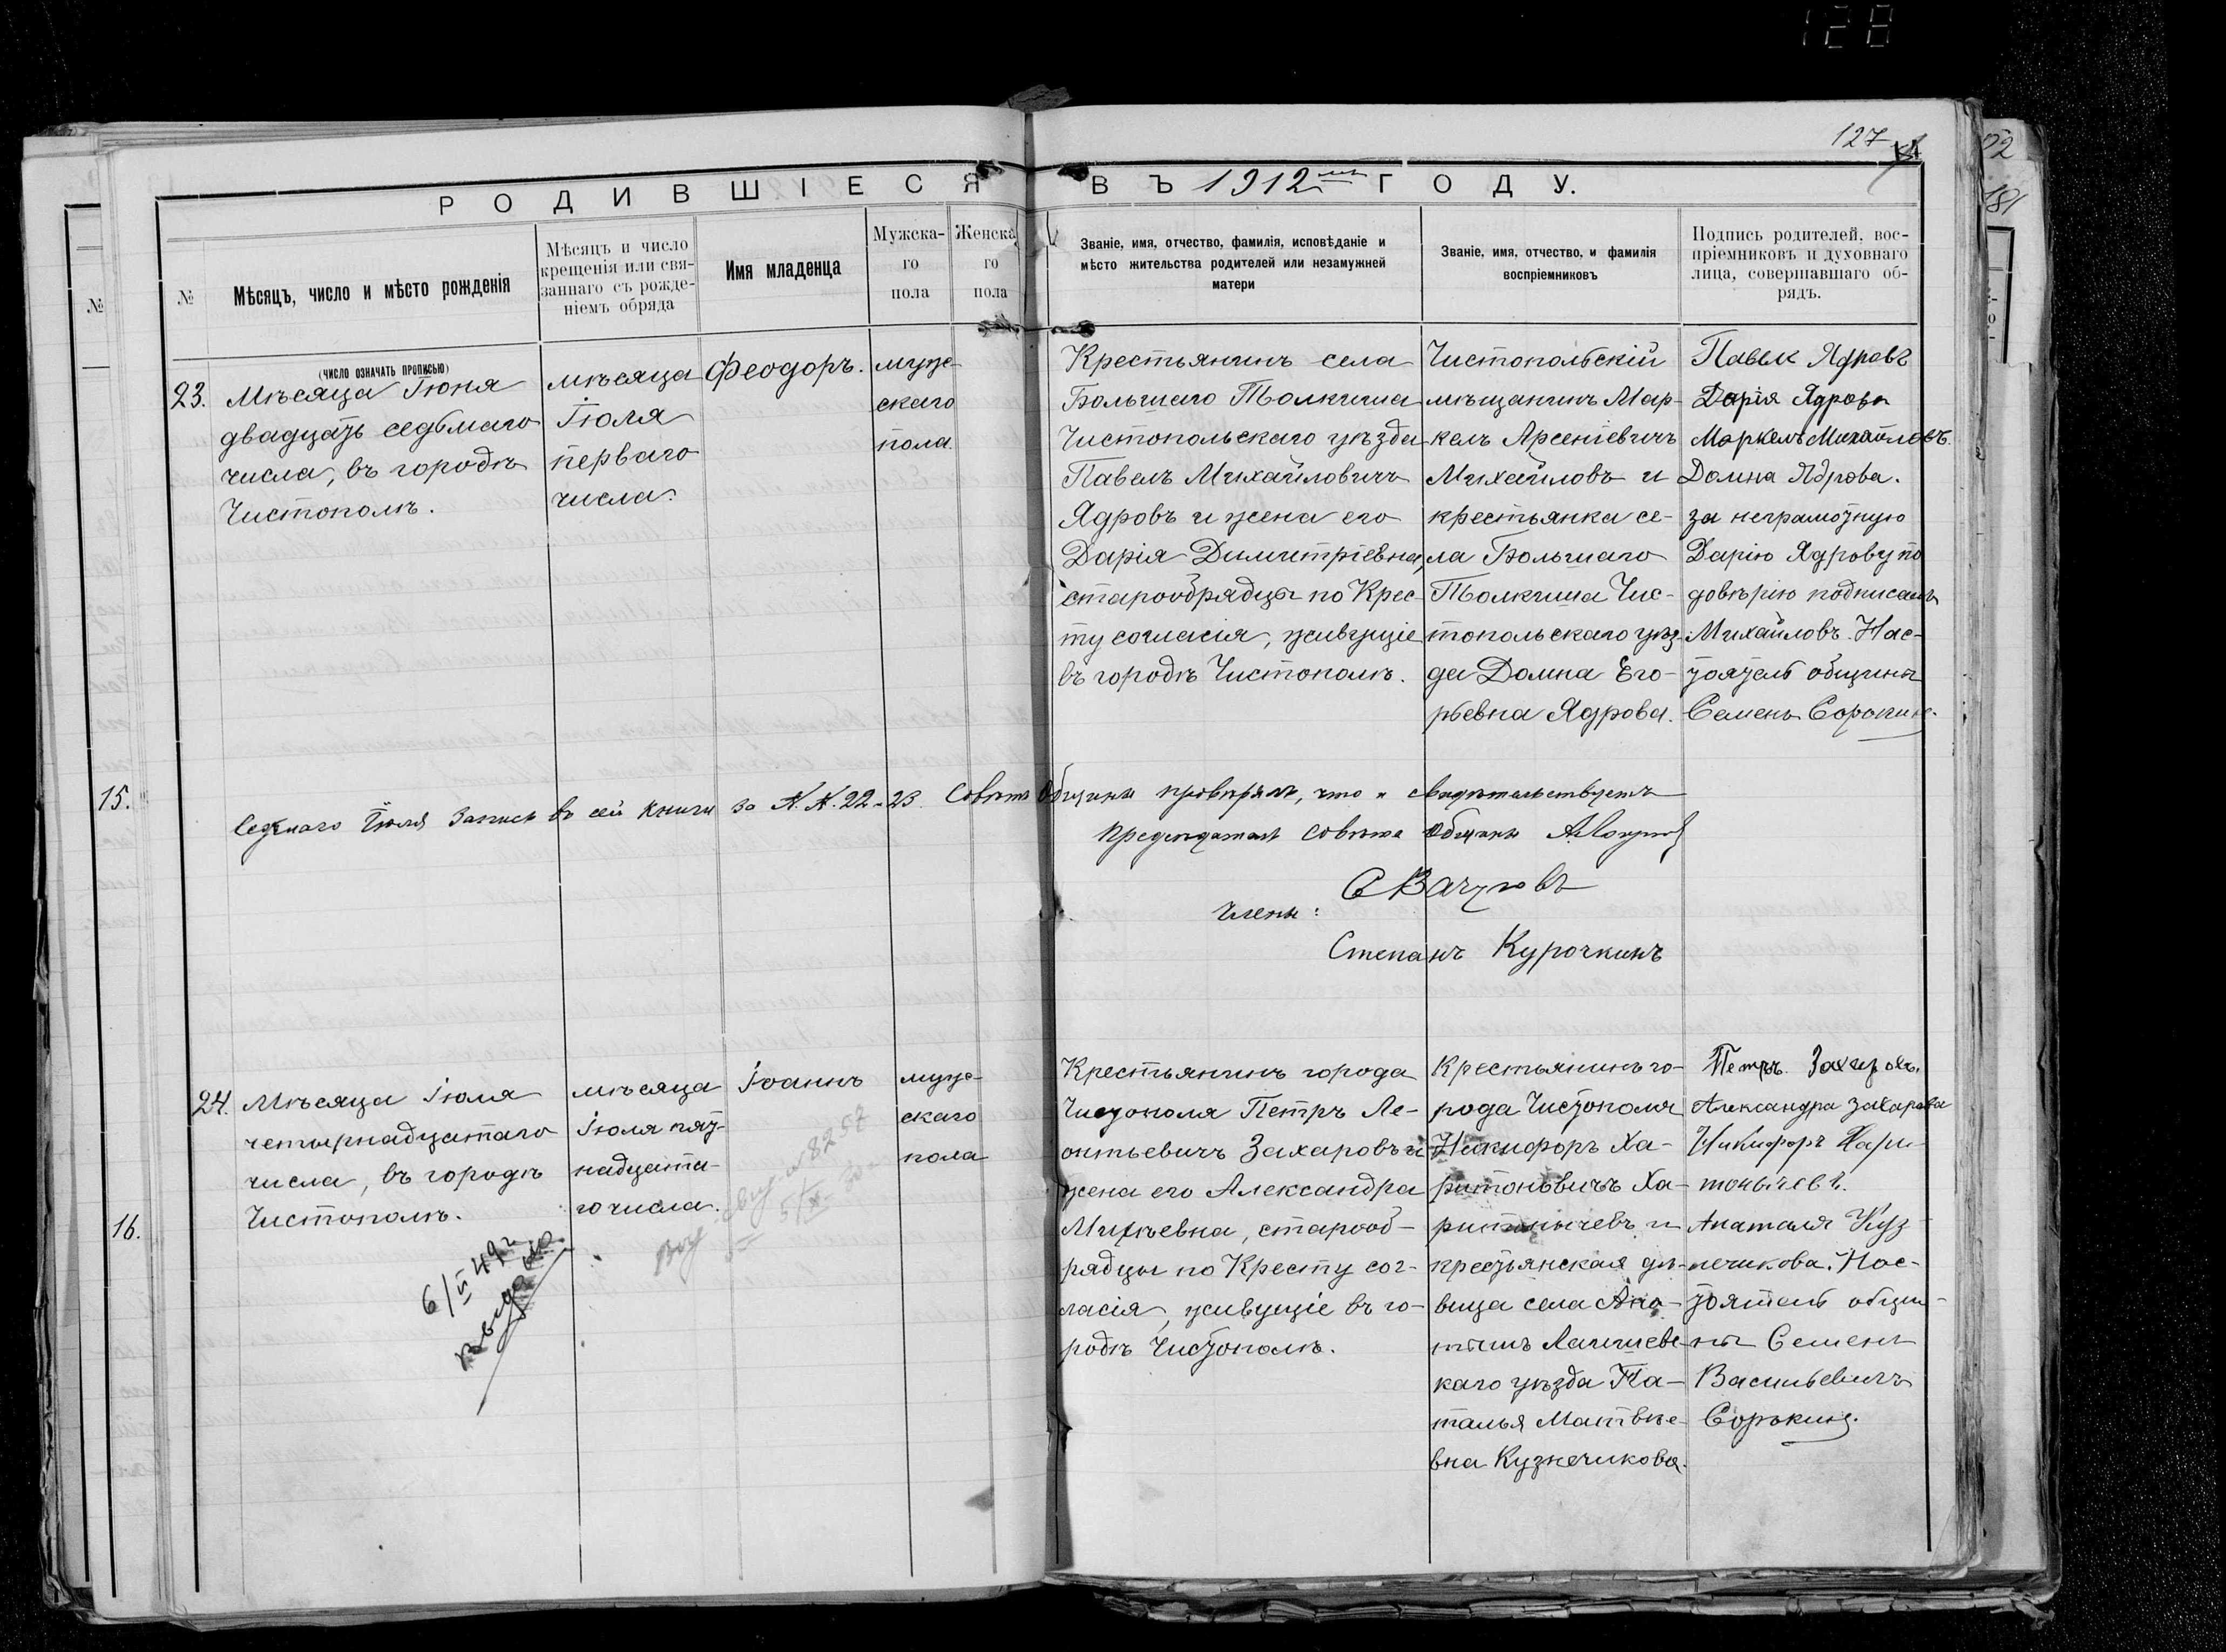 128
127
РОДИВШІЕСЯ ВЪ 1912мъ ГОДУ.
№
Мѣсяцъ, число и мѣсто рожденія
(число означать прописью)
Мѣсяцъ и число
крещенія или свя-
заннаго съ рожде-
ніемъ обряда
Имя младенца
Мужска-
го
пола
Женска
го
пола
Званіе, имя, отчество, фамилія, исповѣданіе и
мѣсто жительства родителей или незамужней
матери
Званіе, имя, отчество, и фамилія
воспріемниковъ
Подпись родителей, вос-
пріемниковъ и духовнаго
лица, совершавшаго об-
рядъ.
23.
Мѣсяца Іюня
двадцать седьмаго
числа, въ городѣ
Чистополѣ.
мѣсяца
Іюля
перваго
числа.
Феодоръ.
муже-
скаго
пола.
Крестьянинъ села
Большаго Толкиша
Чистопольскаго уѣзда
Павелъ Михайловичъ
Ядровъ и жена его
Дарія Димитріевна,
старообрядцы по Крес-
ту согласія, живущіе
въ городѣ Чистополѣ.
Чистопольскій
мѣщанинъ Мар-
келъ Арсеніевичъ
Михайловъ и
крестьянка се-
ла Большаго
Толкиша Чис-
топольскаго уѣз-
да Домна Его-
рьевна Ядрова.
Павелъ Ядровъ
Дарія Ядрова
Маркелъ Михайловъ.
Домна Ядрова.
за неграмотную
Дарію Ядрову по
довѣрію подписалъ
Михайловъ. Нас-
тоятель общины
Семенъ Сорокинъ.
15.
Седьмаго Іюля запись въ сей книги за №.№. 22-23. Совѣтъ Общины провѣрялъ, что и свидѣтельствуетъ
Предсѣдатель Совѣта Общины
Члены:
Степанъ Курочкинъ
24.
Мѣсяца Іюля
четырнадцатаго
числа, въ городѣ
Чистополѣ.
мѣсяца
Іюля пят-
надцата-
го числа.
Іоаннъ
муже-
скаго
пола
Крестьянинъ города
Чистополя Петръ Ле-
онтьевичъ Захаровъ и
жена его Александра
Михѣевна, старооб-
рядцы по Кресту сог-
ласія, живущіе въ го-
родѣ Чистополѣ.
Крестьянинъ го-
рода Чистополя
Никифоръ Ха-
ритоновичъ Ха-
ритонычевъ и
крестьянская дѣ-
вица села
Лаишевс-
каго уѣзда На-
талья Матвѣе-
вна Кузнечикова.
Петръ. Захаровъ.
Александра Захарова
Никифоръ Хари-
тонычевъ.
Наталя Куз-
нечикова. Нас-
тоятель общи-
ны Семенъ
Васильевичъ
Сорокинъ.
16.